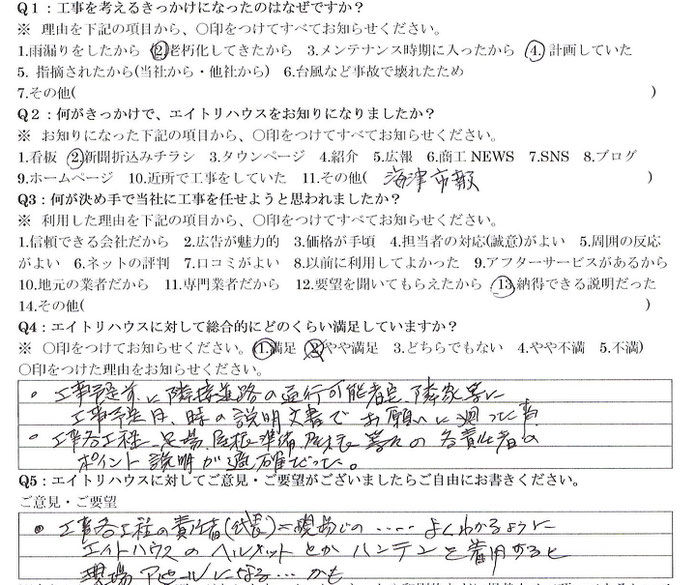 Q1：工事を考えるきっかけになったのはなぜですか？
※ 理由を下記の項目から、〇印をつけてすべてお知らせください。
1.雨漏りをしたから 2.老朽化してきたから 3.メンテナンス時期に入ったから 4.計画していた
5. 指摘されたから(当社から・他社から) 6.台風など事故で壊れたため
7.その他( )
Q2：何がきっかけで、エイトリハウスをお知りになりましたか？
※ お知りになった下記の項目から、〇印をつけてすべてお知らせください。
1.看板 2.新聞折込みチラシ 3.タウンページ 4.紹介 5.広報 6.商工 NEWS 7.SNS 8.ブログ
9.ホームページ 10.近所で工事をしていた 11.その他( 海津市報 )
Q3：何が決め手で当社に工事を任せようと思われましたか？
※ 利用した理由を下記の項目から、〇印をつけてすべてお知らせください。
1.信頼できる会社だから 2.広告が魅力的 3.価格が手頃 4.担当者の対応(誠意)がよい 5.周囲の反応
がよい 6.ネットの評判 7.口コミがよい 8.以前に利用してよかった 9.アフターサービスがあるから
10.地元の業者だから 11.専門業者だから 12.要望を聞いてもらえたから 13.納得できる説明だった
14.その他( )
Q4：エイトリハウスに対して総合的にどのくらい満足していますか？
※ 〇印をつけてお知らせください。(1.満足 2.やや満足 3.どちらでもない 4.やや不満 5.不満)
〇印をつけた理由をお知らせください。
・工事予定前に隣接道路の通行可能者宅、隣家等に
工事予定日、時の説明文書でお願いに廻った事
・工事各工程、足場、屋根準備、等々の各責任者の
ポイント説明が適確だった。
Q5：エイトリハウスに対してご意見・ご要望がございましたらご自由にお書きください。
ご意見・ご要望
・工事各工程の責任者 現場での‥‥よくわかるように
エイトハウスのヘルメットとかハンテンを着用すると
現場アピールになる…かも